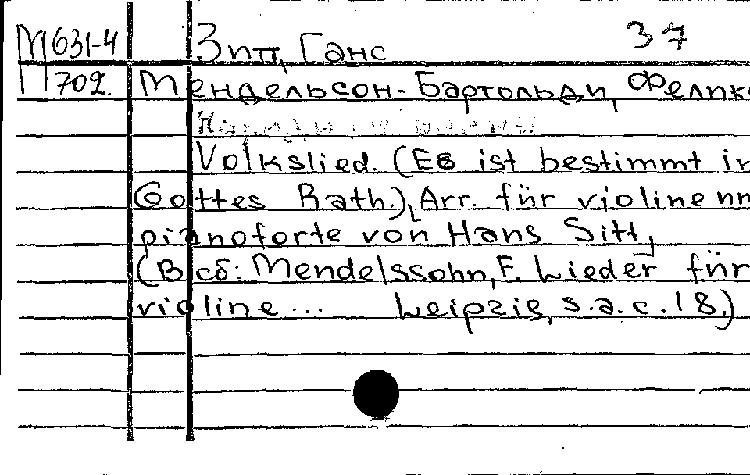 М631-4 Зитт, Ганс 37
П702. Мендельсон-Бартольди, Феликс
Volkslied. (Es ist bestimmt in
Gottes Rath.), Arr. für violine nn
pianoforte von Hans Sitt,
(В сб: Mendelssohn, F. Lieder für
violine... Leipzig, s.a. c.18.)